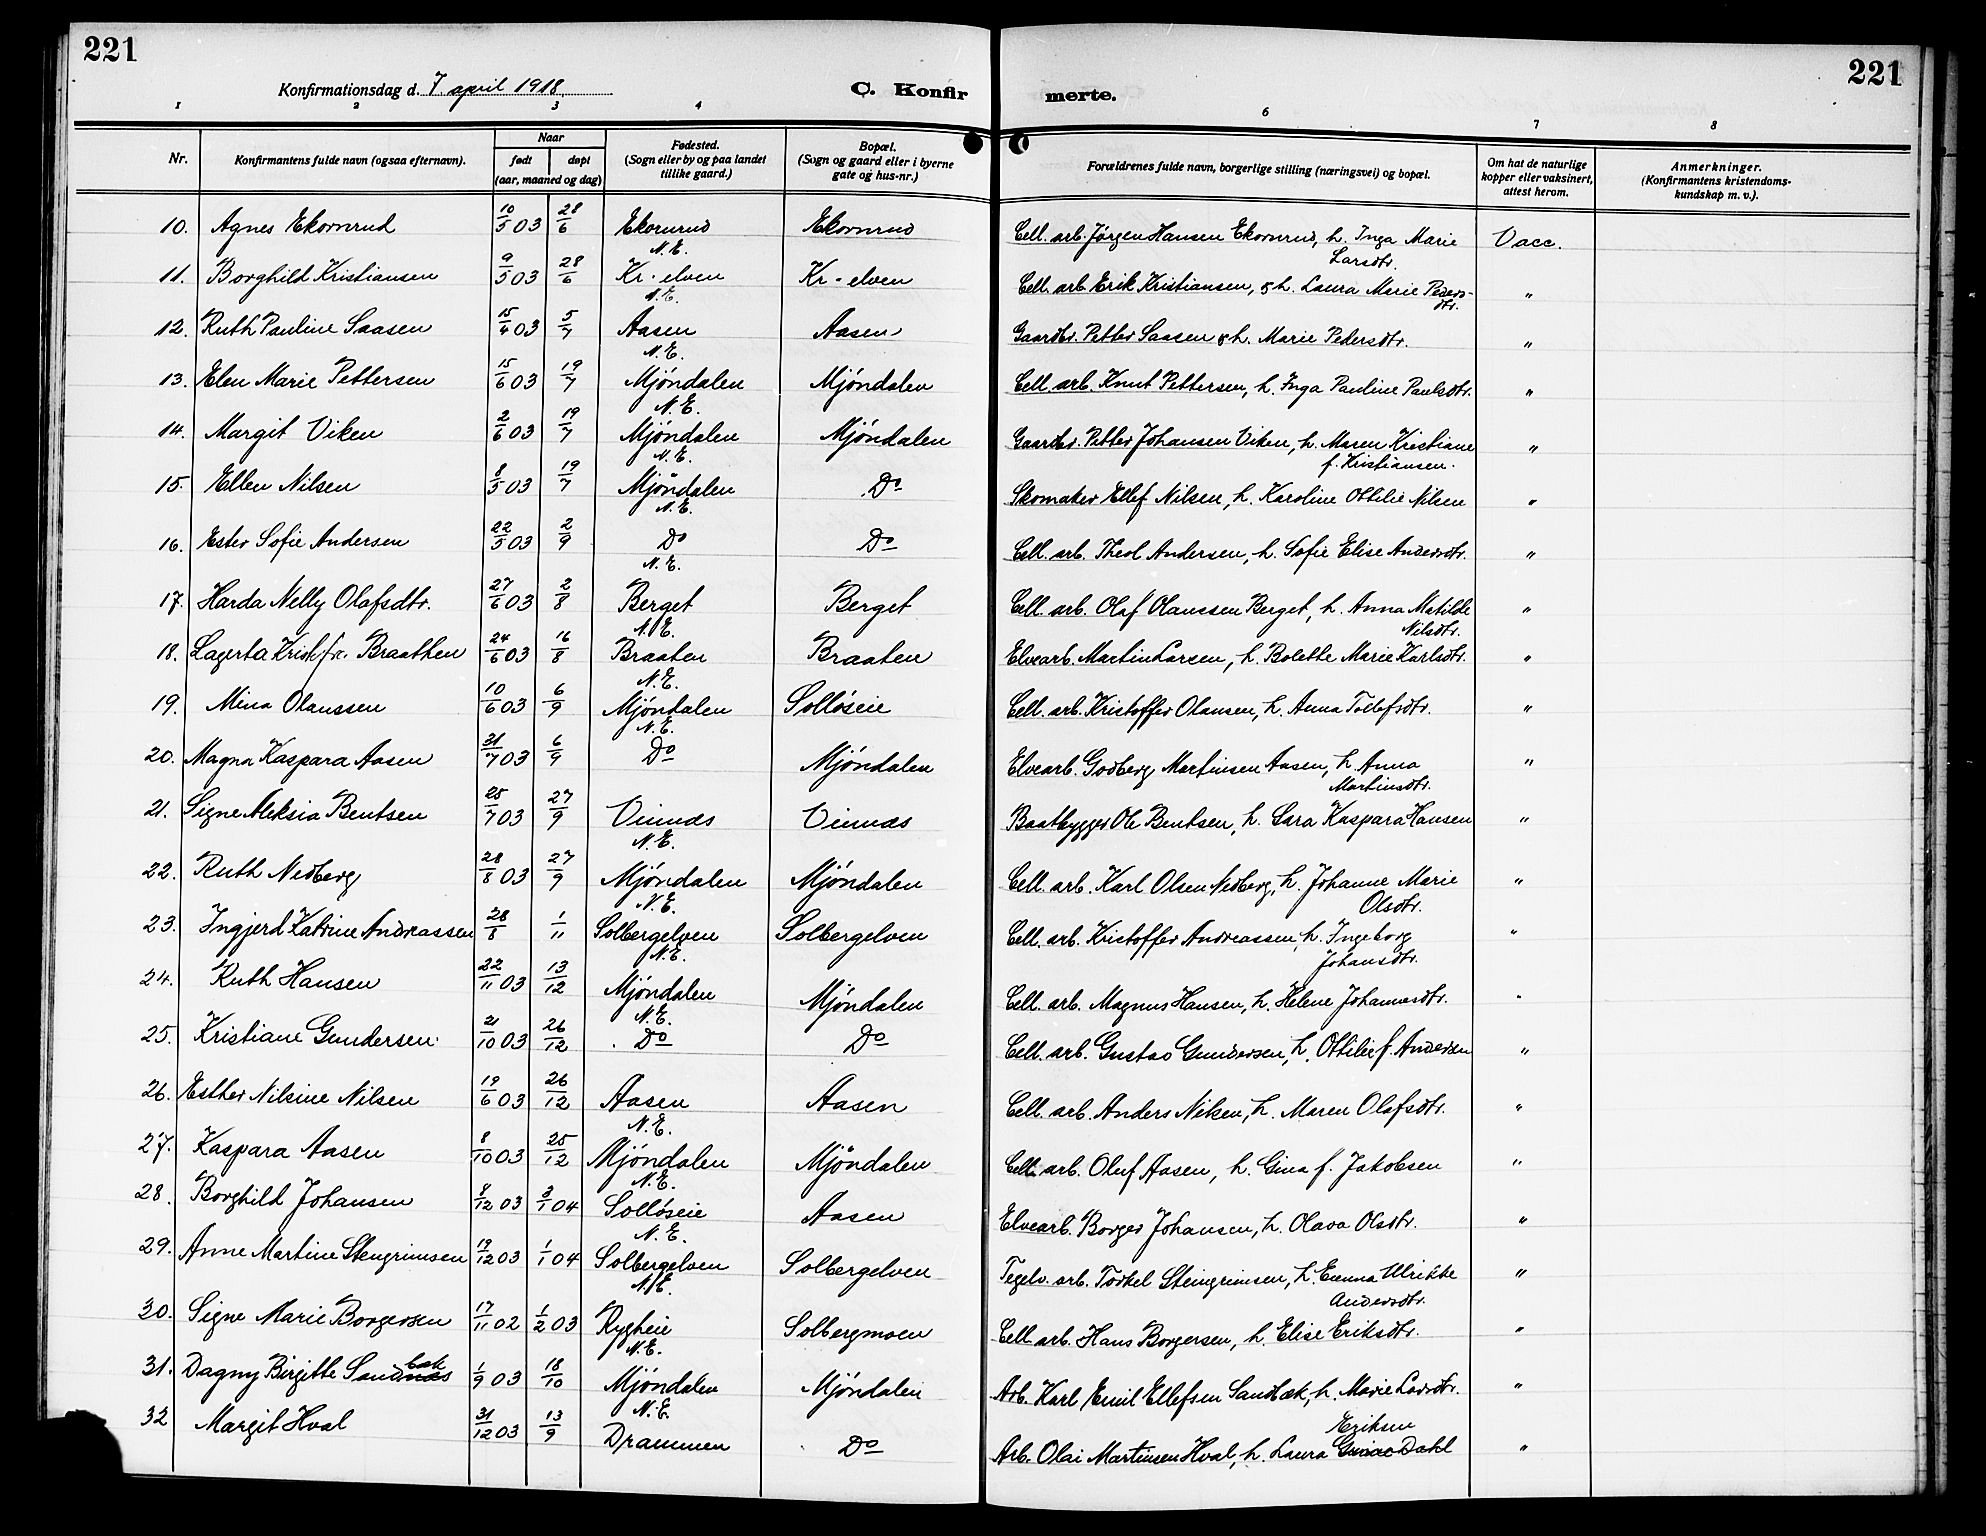 221
221
Konfirmationsdag d. 7. april 1918.
C. Konfir
merte.
1 2 3 4 6 7 8
Nr.
Konfirmantens fulde navn (ogsaa efternavn).
Naar
født døpt
(aar, maaned og dag)
Fødested.
(Sogn eller by og paa landet
tillike gaard.)
Bopæl.
(Sogn og gaard eller i byerne
gate og hus-nr.)
Forældrenes fulde navn, borgerlige stilling (næringsvei) og bopæl.
Om hat de naturlige
kopper eller vaksinert,
attest herom.
Anmerkninger.
(Konfirmantens kristendoms-
kundskap m. v.).
10. Agnes Ekornrud 10/5 03 28/6 Ekornrud Ekornrud Cell. arb. Jørgen Hansen Ekornrud, h. Inga Marie Vacc.
N.E. Larsdtr.
11. Borghild Kristiansen 9/5 03 28/6 Kr-elven Kr-elven Cell. arb. Erik Kristiansen, & h. Laura Marie Peders- "
N.E. dtr.
12. Ruth Pauline Saasen 15/4 03 5/7 Aasen Aasen Gaardbr. Petter Saasen & h. Marie Pedersdtr. "
N.E.
13. Elen Marie Pettersen 15/6 03 19/7 Mjöndalen Mjöndalen Cell. arb. Knut Pettersen, h. Inga Pauline Paulsdtr. "
N.E.
14. Margit Viken 2/6 03 19/7 Mjöndalen Mjöndalen Gaardbr. Petter Johansen Viken, h. Maren Kristiane "
N.E. f. Kristiansen.
15. Ellen Nilsen 8/5 03 19/7 Mjöndalen Do Skomaker Ellef Nilsen, h. Karoline Ottilie Nilsen "
N.E.
16. Ester Sofie Andersen 22/5 03 2/9 Do Do Cell. arb. Theol Andersen, h. Sofie Elise Andersdtr. "
N.E.
17. Harda Nelly Olafsdtr. 27/6 03 2/8 Berget Berget Cell. arb. Olaf Olanssen Berget, h. Anna Matilde "
N.E. Nilsdtr.
18. Lagerta Braathen 24/6 03 16/8 Braaten Braaten Elvearb. Martin Larsen, h. Bolette Marie Karlsdtr. "
N.E.
19. Mina Olanssen 10/6 03 6/9 Mjöndalen Solløseie Cell. arb. Kristoffer Olansen, h. Anna Tollefsdtr. "
N.E.
20. Magna Kaspara Aasen 31/7 03 6/9 Do Mjöndalen Elvearb. Godberg Martinsen Aasen, h. Anna "
Martinsdtr.
21. Signe Aleksia Bentsen 25/7 03 27/9 Vinnæs Vinnæs Baatbygger Ole Bentsen, h. Sara Kaspara Hansen "
N.E.
22. Ruth Nedberg 28/8 03 27/9 Mjöndalen Mjöndalen Cell. arb. Karl Olsen Nedberg, h. Johanne Marie "
N.E. Olsdtr.
23. Ingjerd Katrine Andreassen 28/8 1/11 Solbergelven Solbergelven Cell. arb. Kristoffer Andreassen, h. Ingeborg "
N.E. Johansdtr.
24. Ruth Hansen 22/11 03 13/12 Mjöndalen Mjöndalen Cell. arb. Magnus Hansen, h. Helene Johannesdtr. "
N.E.
25. Kristiane Gundersen 21/10 03 26/12 Do Do Cell. arb. Gustav Gundersen, h. Ottilie f. Andersen "
26. Esther Nilsine Nilsen 19/6 03 26/12 Aasen Aasen Cell. arb. Anders Nilsen, h. Maren Olafsdtr. "
N.E.
27. Kaspara Aasen 8/10 03 25/12 Mjöndalen Mjöndalen Cell. arb. Oluf Aasen, h. Gina f. Jakobsen "
N.E.
28. Borghild Johansen 8/12 03 3/1 04 Solløseie Aasen Elvearb. Borger Johansen, h. Olava Olsdtr. "
N.E.
29. Anne Martine Stengrimsen 19/12 03 1/1 04 Solbergelven Solbergelven Tegelv. arb. Torkel Steingrimsen, h. Emma Ulrikke "
N.E. Andersdtr.
30. Signe Marie Borgersen 17/11 02 1/2 03 Rygheie Solbergmoen Cell. arb. Hans Borgersen, h. Elise Eriksdtr. "
N.E.
bæk
31. Dagny Birgitte Sandnæs 1/9 03 18/10 Mjöndalen Mjöndalen Arb. Karl Emil Ellefsen Sandbæk, h. Marie Larsdtr. "
N.E. Eriksen
32 Margit Hval 31/12 03 13/9 Drammen Do Arb. Olai Martinsen Hval, h. Laura Dahl "